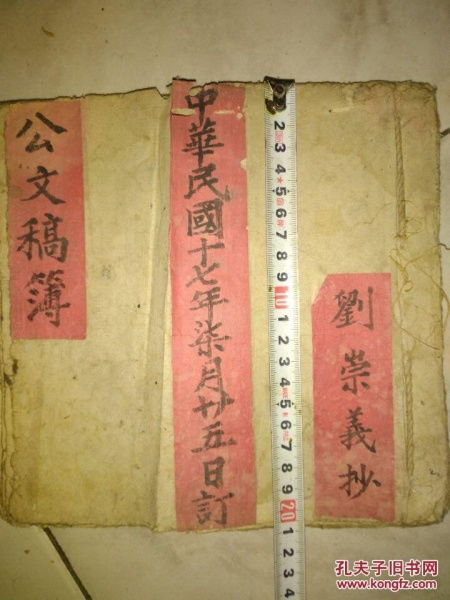 劉崇義抄
中華民國十七年柒月廿五日訂
公文稿簿
2
3
4
5
6
7
8
9
10
1
2
3
4
5
6
7
8
9
20
1
2
3
4
孔夫子旧书网
www.kongfz.com